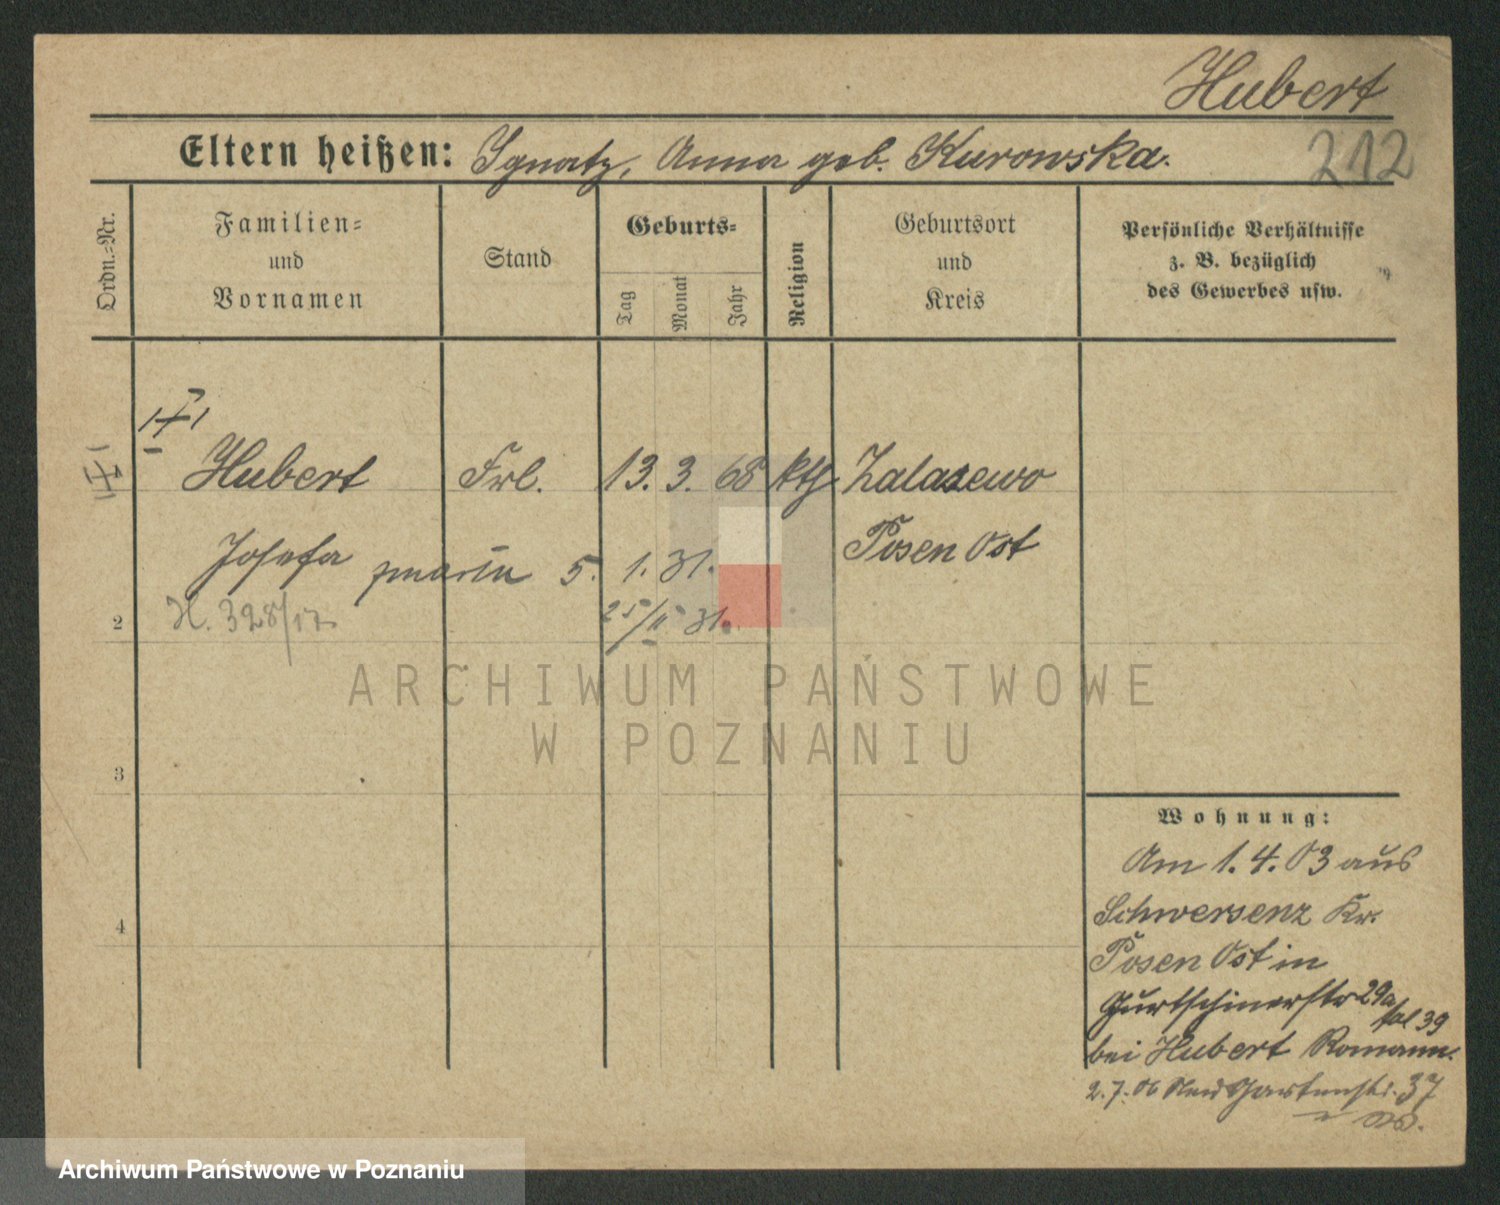 Hubert
Eltern heißen: Ignatz, Anna geb. Kurowska.
212
Ordn.-Nr.
Familien-
und
Vornamen
Stand
Geburts-
Tag
Monat
Jahr
Religion
Geburtsort
und
Kreis
Persönliche Verhältnisse
z. B. bezüglich
des Gewerbes usw.
Hubert Frl. 13. 3. 68 kth Zalasewo
Josefa 5. 1. 31. Posen Ost
2 N. 328/17 25/II 31.
ARCHIWUM PAŃSTWOWE
W POZNANIU
3
4
Wohnung:
Am 1. 4. 03 aus
Schwersenz Kr.
Posen Ost in
Gurtschinerstr 29a
39
bei Hubert Roman.
2. 7. 06 Neue Gartenstr. 37
Archiwum Państwowe w Poznaniu